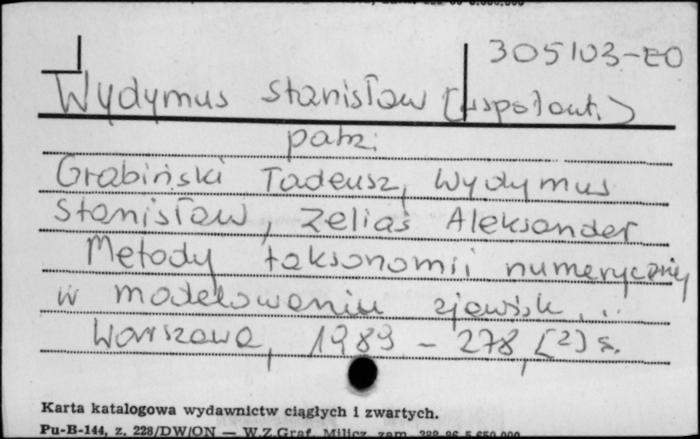 305103-EO
Wydymus Stanisław (współaut.)
patrz:
Grabiński Tadeusz, Wydymus
Stanisław, Zeliaś Aleksander
Metody taksonomii numerycznej
w modelowaniu zjawisk...
Warszawa, 1989 - 278, [2] s.
Karta katalogowa wydawnictw ciągłych i zwartych.
Pu-B-144, z. 228/DW/ON — W.Z.Graf. Milicz, zam.